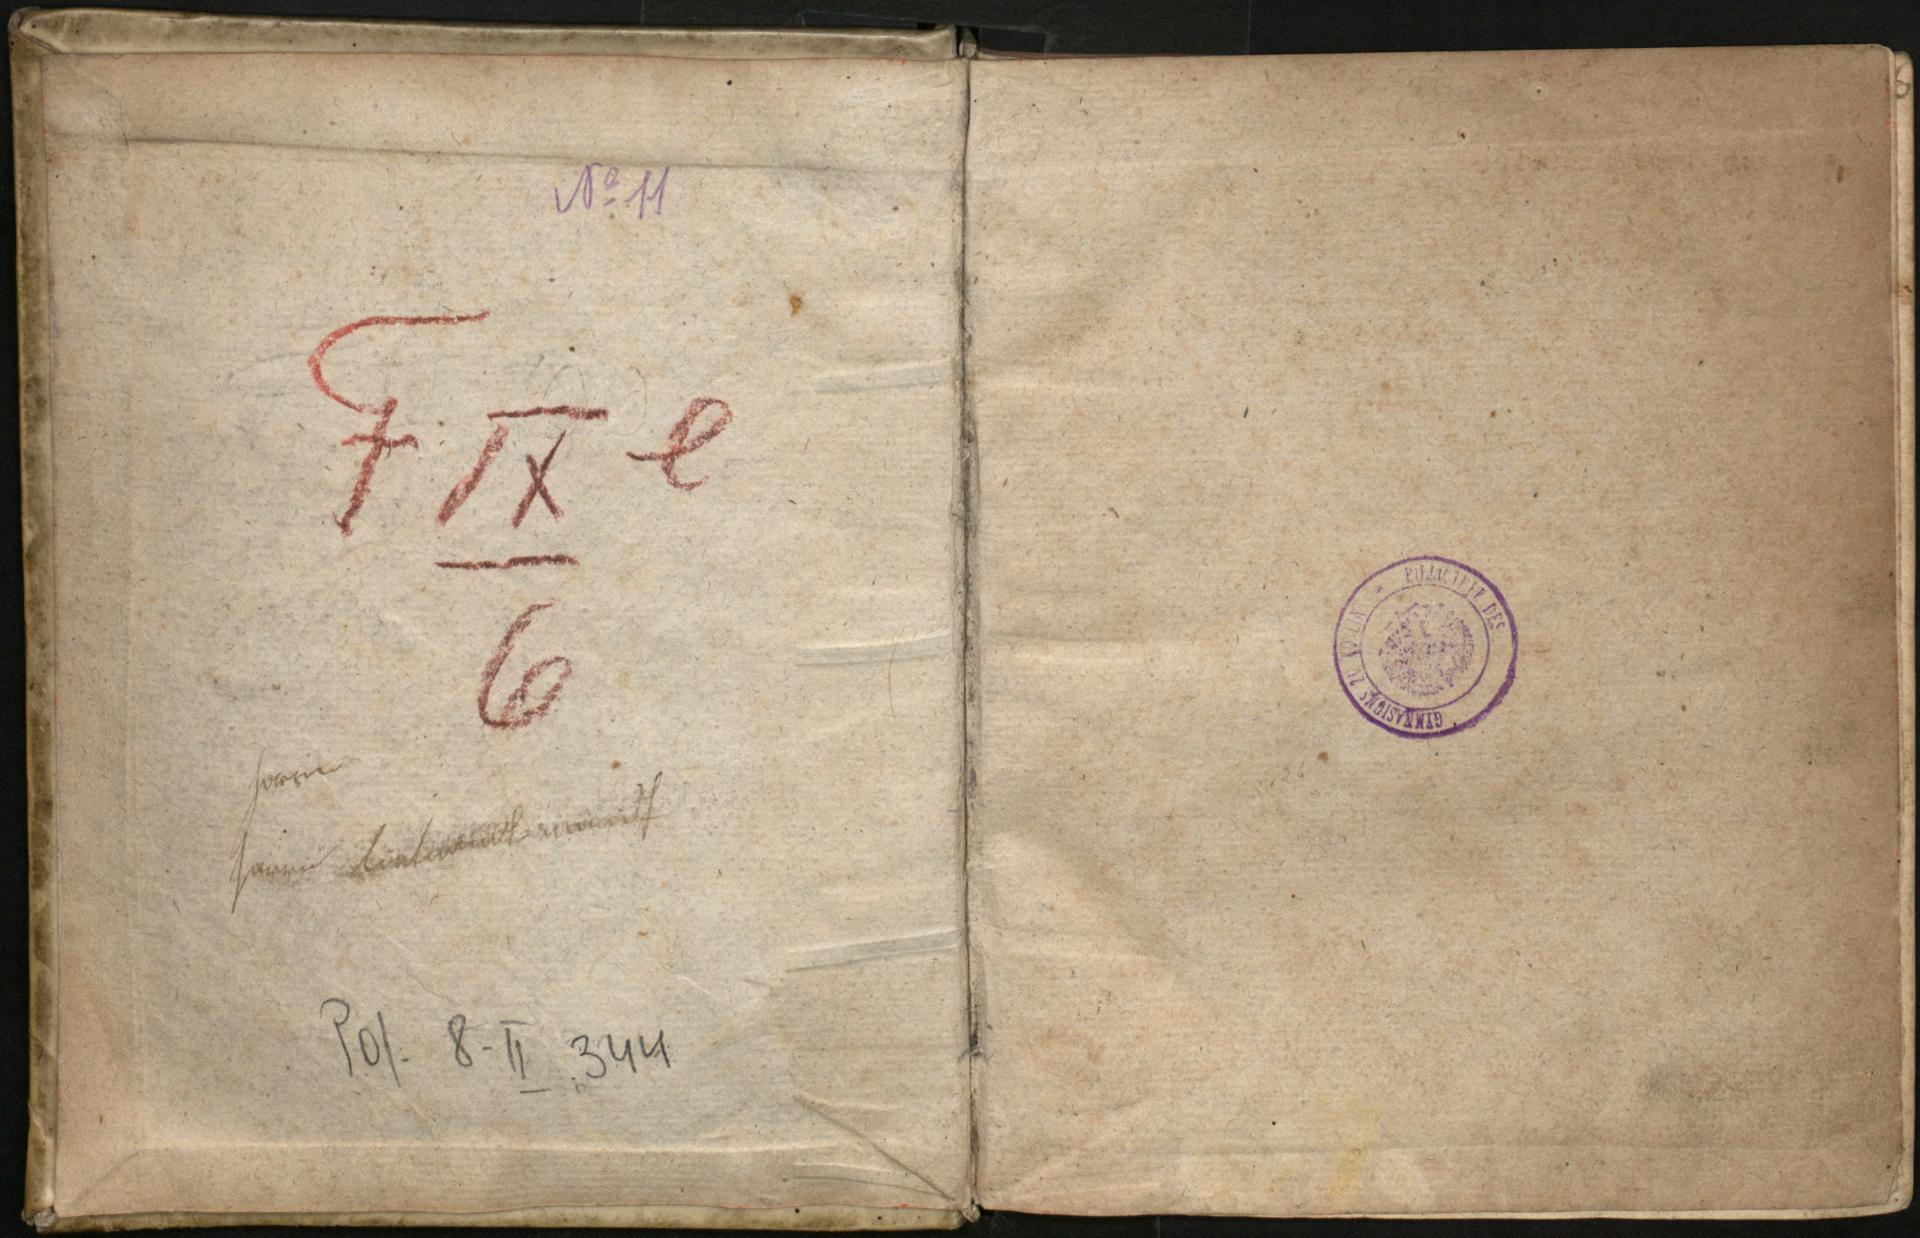 Nº 11
F IX e
6
Pol. 8-II 344
BIBLIOTHEK DES
GYMNASIUMS ZU KÖSLIN